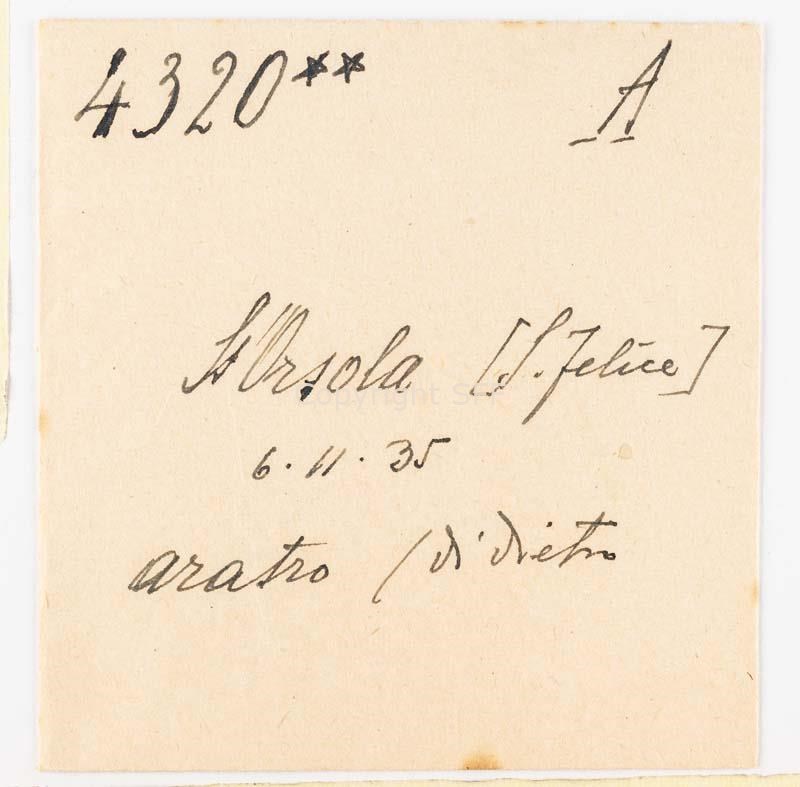 4320** A
St Orsola [S. Felice]
6. 11. 35
aratro (di dietro